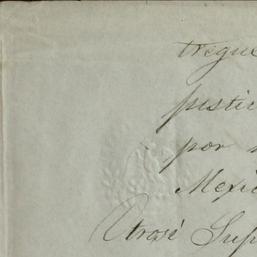 tregue
justic
por
Mexic
Otrosí Sup